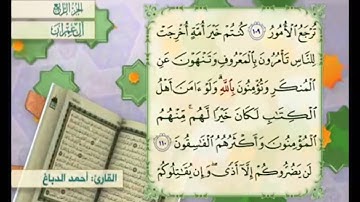 الجزء الرابع
آل عمران
تُرْجَعُ الْأُمُورُ ١٠٩ كُنتُمْ خَيْرَ أُمَّةٍ أُخْرِجَتْ
لِلنَّاسِ تَأْمُرُونَ بِالْمَعْرُوفِ وَتَنْهَوْنَ عَنِ
الْمُنكَرِ وَتُؤْمِنُونَ بِاللَّهِ وَلَوْ ءَامَنَ أَهْلُ
الْكِتَابِ لَكَانَ خَيْرًا لَّهُم مِّنْهُمُ
الْمُؤْمِنُونَ وَأَكْثَرُهُمُ الْفَاسِقُونَ ١١٠
لَن يَضُرُّوكُمْ إِلَّا أَذًى وَإِن يُقَاتِلُوكُمْ
القارئ: أحمد الدباغ